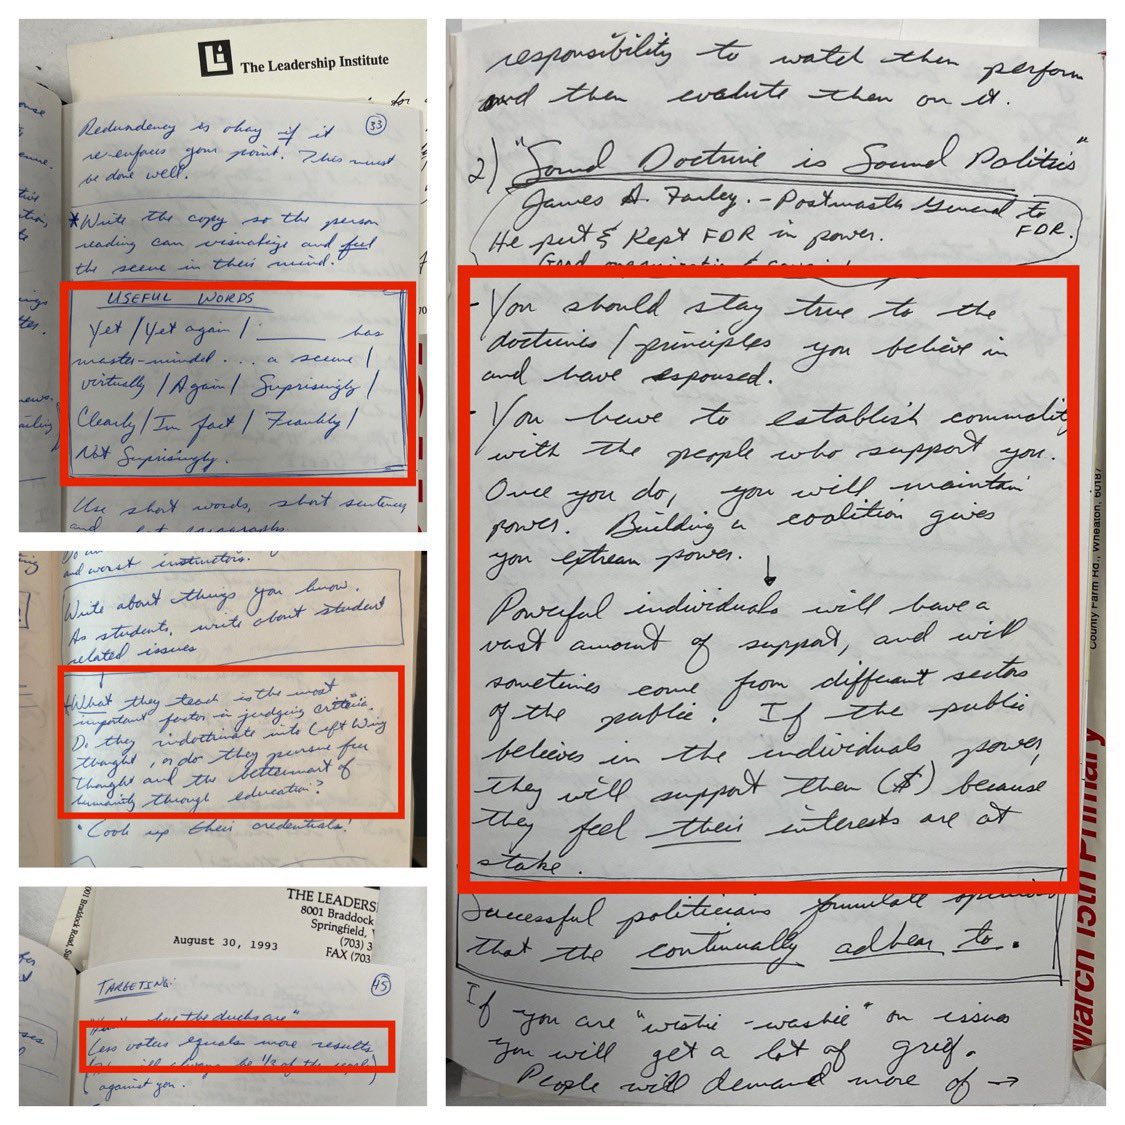 The Leadership Institute
33
Redundancy is okay if it
re-enforces your point. This must
be done well.
*Write the copy so the person
reading can visualize and feel
the scene in their mind.
USEFUL WORDS
Yet / Yet again / ______ has
master-minded . . . a scene /
virtually / Again / Suprisingly /
Clearly / In fact / Frankly /
Not Suprisingly.
Use short words, short sentences
and paragraphs
and worst instructors.
Write about things you know.
As students, write about student
related issues
What they teach is the most
important factor in judging criteria.
Do they indoctrinate into Left Wing
thought, or do they pursue free
thought and the betterment of
humanity through education?
• Look up their credentials!
THE LEADERS
8001 Braddock
Springfield,
(703) 3
FAX (703
August 30, 1993
45
TARGETING:
the ducks are"
Less voters equals more results
will always be 1/3 of the
against you.
responsibility to watch them perform
and then evalute them on it.
2) "Sound Doctrine is Sound Politics"
James A. Farley. - Postmaster General to
FDR.
He put & Kept FDR in power.
Good
- You should stay true to the
doctrines / principles you believe in
and have espoused.
- You have to establish commality
with the people who support you.
Once you do, you will maintain
power. Building a coalition gives
you extream power.
Powerful individuals will have a
vast amount of support, and will
sometimes come from different sectors
of the public. If the public
believes in the individuals power,
they will support them ($) because
they feel their interests are at
stake.
Successful politicians formulate opinions
that the continually adhear to.
If you are "wishie-washie" on issues
you will get a lot of grief.
People will demand more of →
County Farm Rd., Wheaton, 60187
March 15th Primary